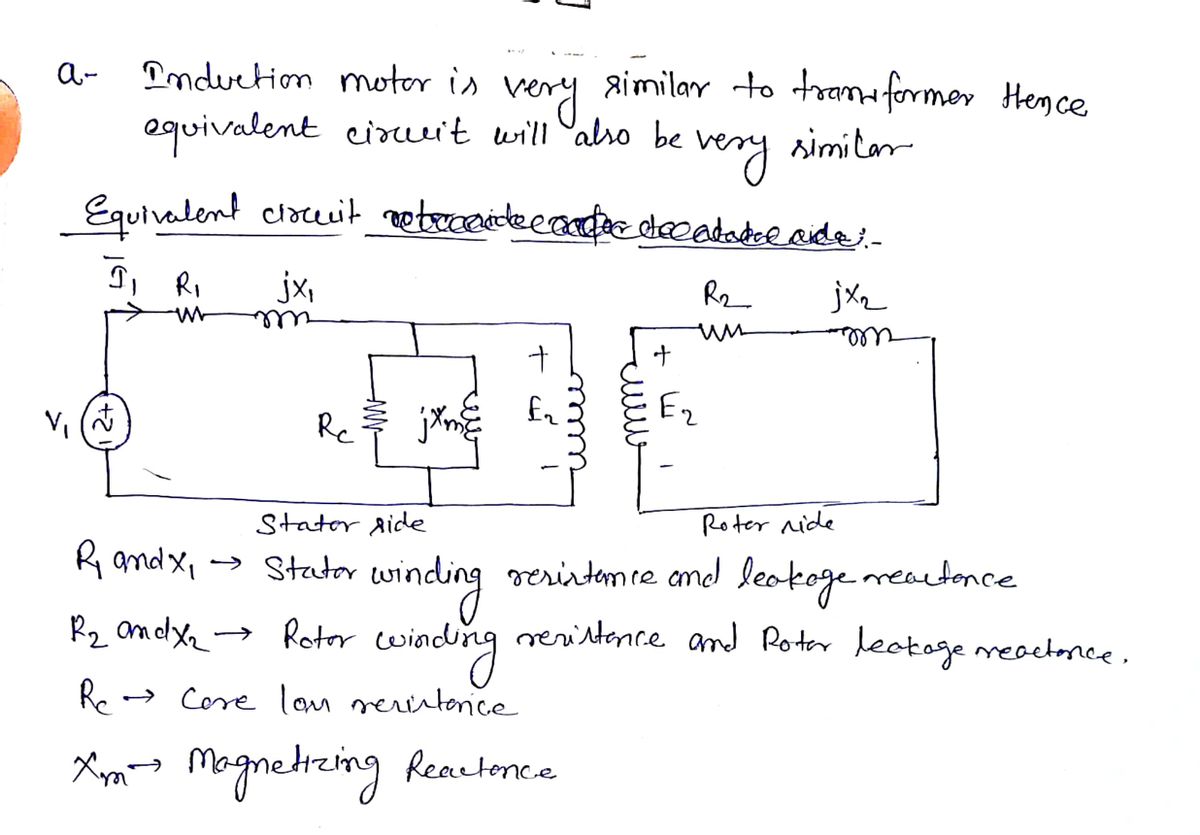 a- Induction motor is very similar to transformer Hence
equivalent circuit will also be very similar
Equivalent circuit :-
I₁ R₁ jx₁
R₂ jX₂
V₁ + - Rc jXm + E₂ - + E₂ -
Stator side Rotor side
R₁ and X₁ → Stator winding resistance and leakage reactance
R₂ and X₂ → Rotor winding resistance and Rotor leakage reactance.
Rc → Core loss resistance
Xm → Magnetizing Reactance